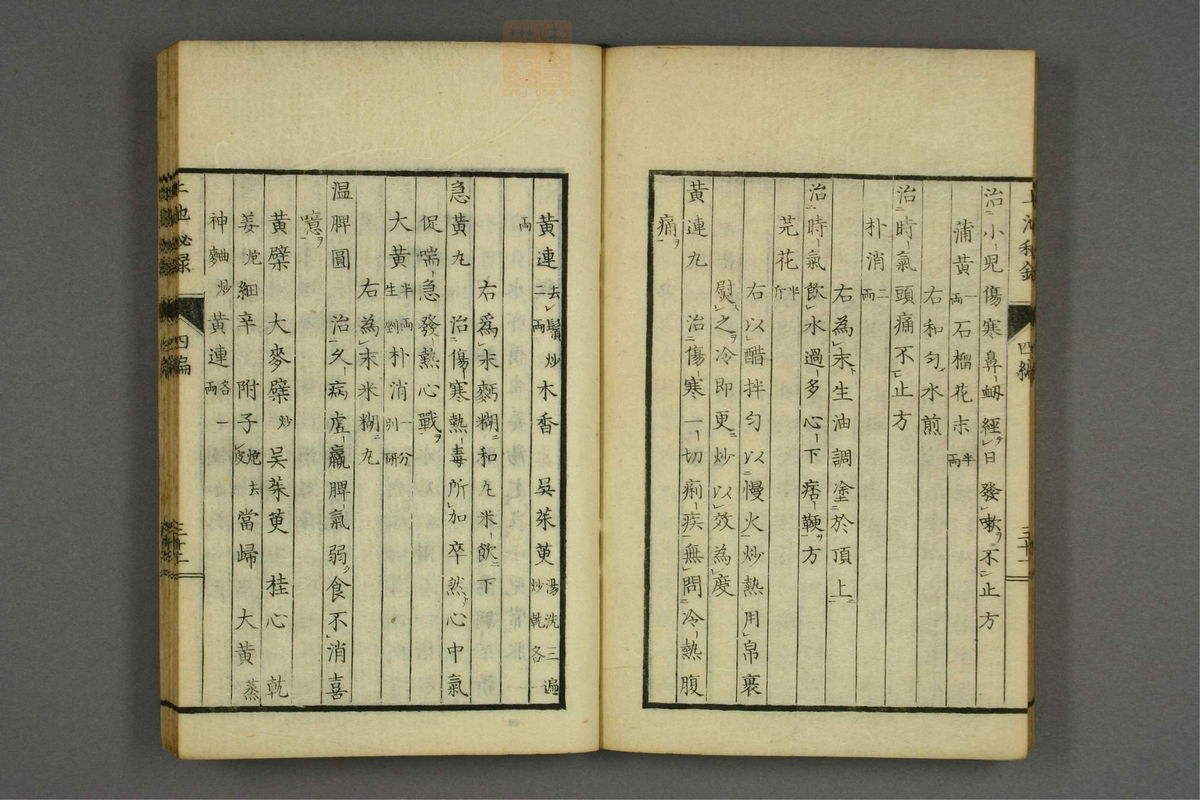 治小児傷寒鼻衂経日発嗽不止方
蒲黄一両石榴花末半両
右和匀水煎
治時氣頭痛不止方
朴消二両
右為末生油調塗於頂上
治時氣飲水過多心下痞鞕方
芫花半斤
右以醋拌匀以慢火炒熱用帛裹
熨之冷即更炒以效為度
黄連丸　治傷寒一切痢疾無問冷熱腹
痛
黄連去鬚炒二両木香　呉茱萸湯洗三遍炒乾各
両
右為末麪糊和丸米飲下
急黄丸　治傷寒熱毒所加卒然心中氣
促喘急発熱心戰
大黄半両生剉朴消一分別研
右為末米糊丸
温脾圓　治久病虚羸脾氣弱食不消喜
噫
黄檗　大麥糵炒呉茱萸　桂心　乾
姜炮細辛　附子炮去皮當歸　大黄蒸
神麯炒黄連各一両
四編
四編
三十二